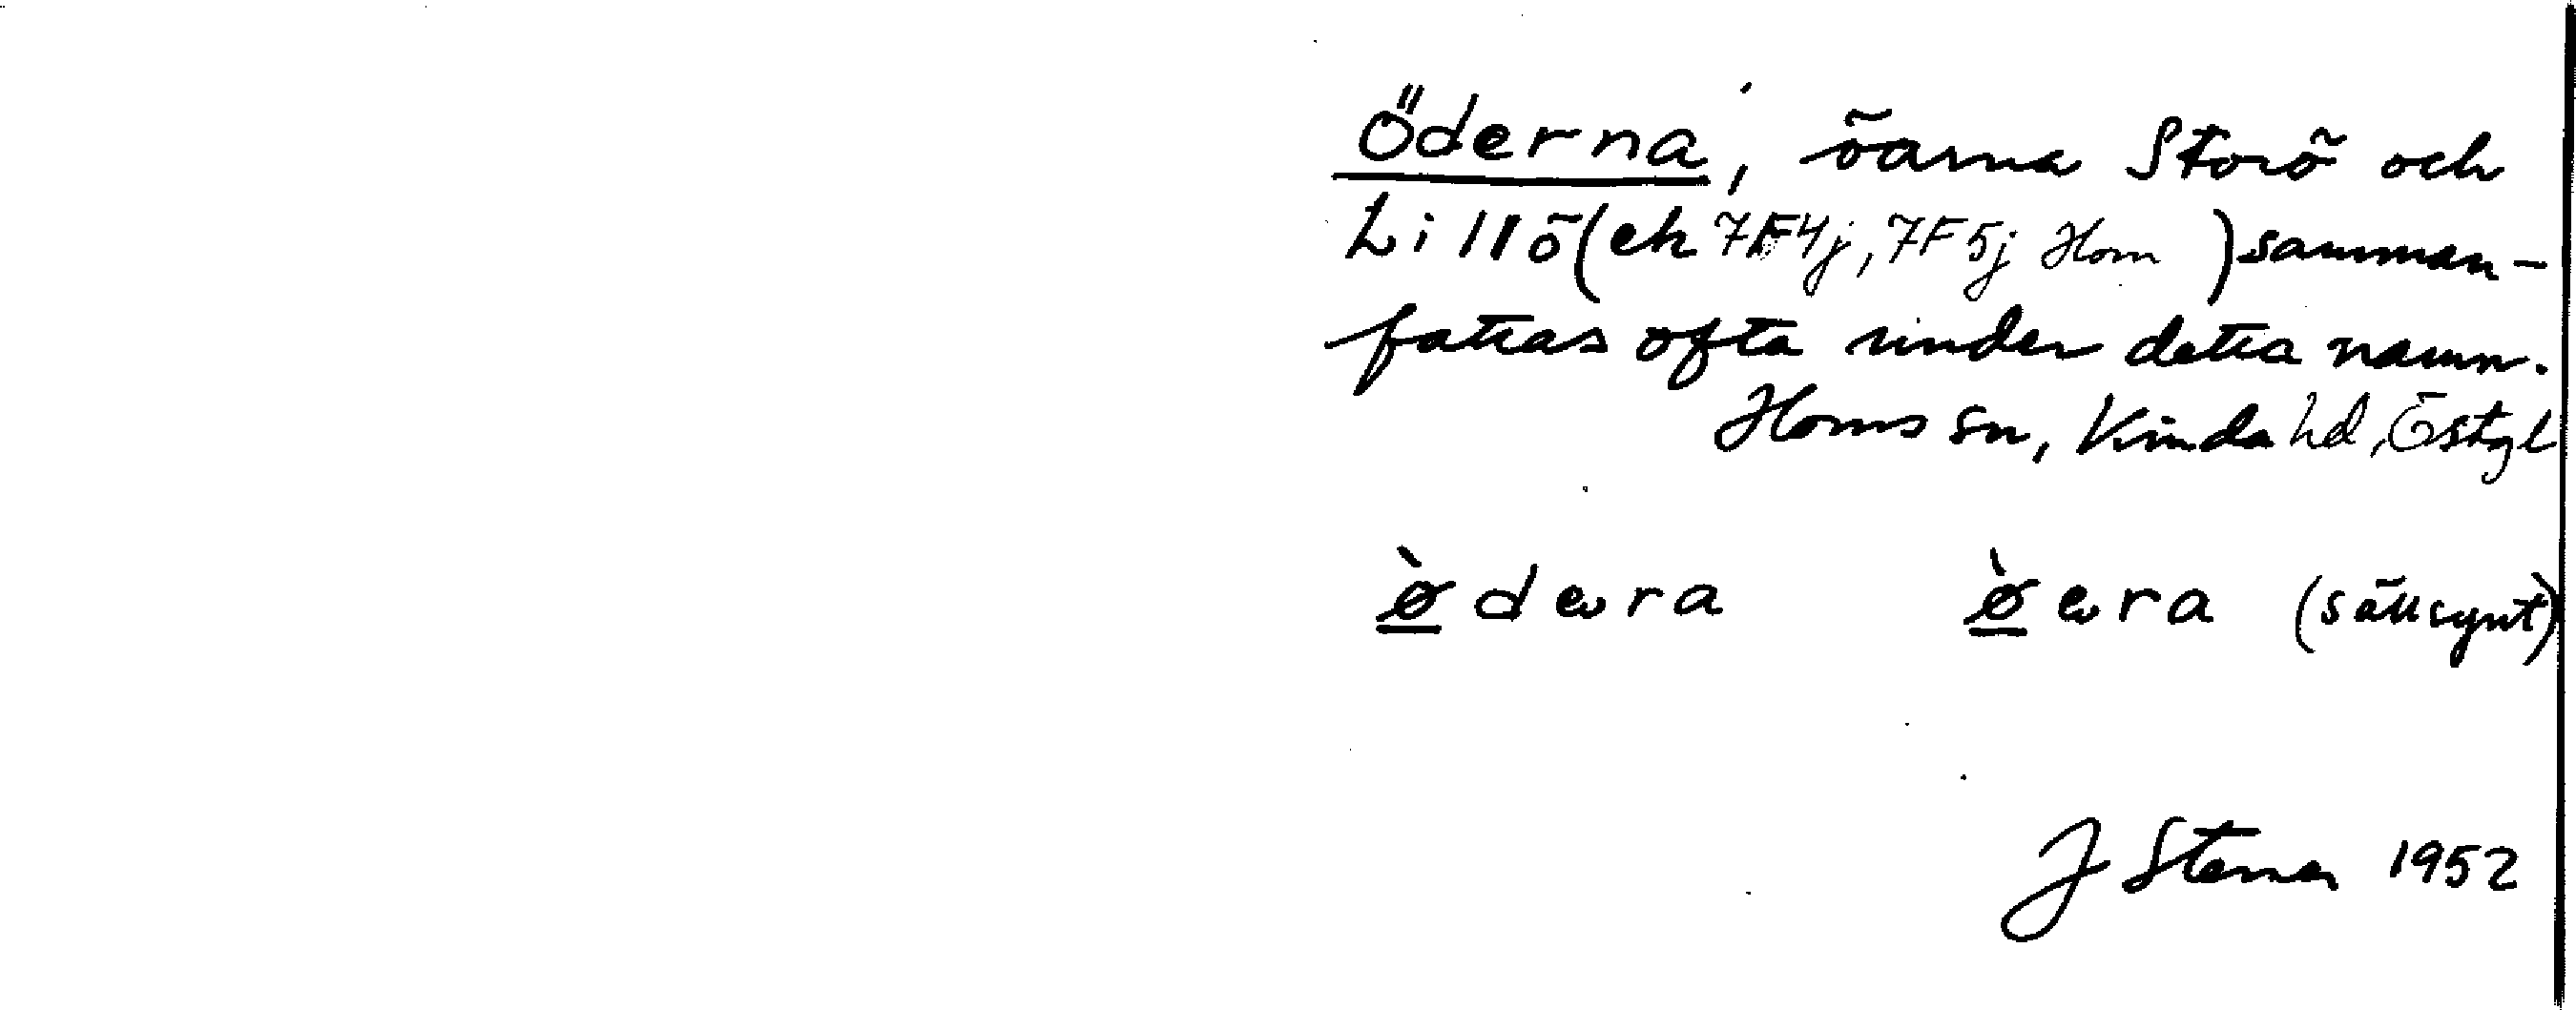 Öderna, öarna Storö och
Lillö (ek 7F4j, 7F5j Horn) samman-
fattas ofta under detta namn.
Horns sn, Kinda hd, Östgl
ø̱̀dəra ø̱̀əra (sällsynt)
J Stener 1952